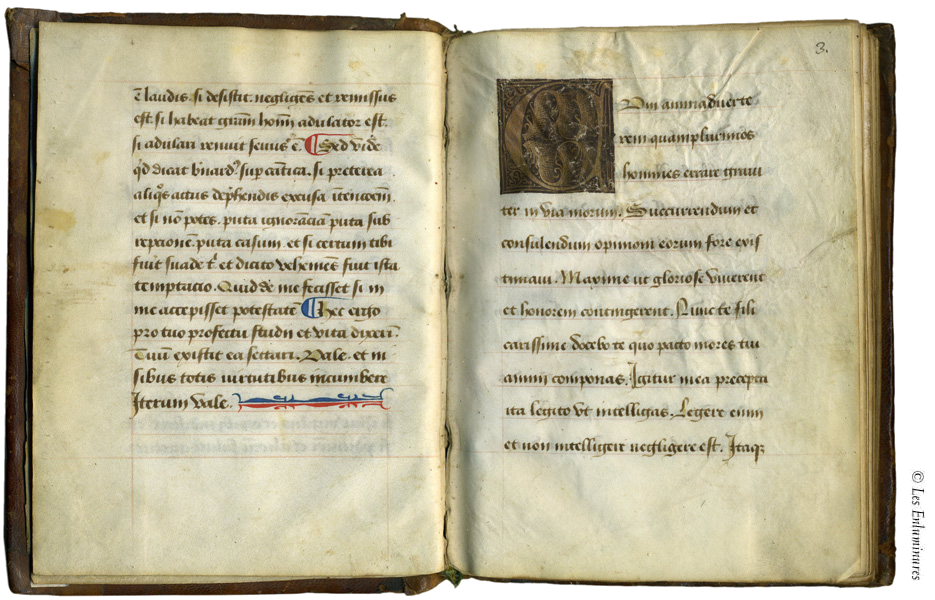 claudis. si desistit. negliges et remissus
est. si habeat grām homī adulator est.
si adulari renuit seuus ē. Sed vide
qd dicat bnard9 sup cātica. si preterea
aliqs actus dephendis excusa itencoem.
et si nō potes. puta ignorāciā puta sub
repcionē. puta casum. et si certum tibi
fuit suade t' et dicito vehemēs fuit ista
temptacio. Quid de me fecisset si in
me accepisset potestatē Hec ergo
pro tuo profectu studii et vita dixeri.
Tuū existit ea sectari. Vale. et ni
sibus totis uirtutibus incumbere
Iterum vale.
3.
Cum animaduerte
rem quamplurimos
homines errare graui
ter in via morum. Succurrendum et
consulendum opinioni eorum fore exis
timaui. Maxime ut gloriose viuerent
et honorem contingerent. Nunc te fili
carissime docebo te quo pacto mores tui
animi componas. Igitur mea precepta
ita legito vt intelligas. Legere enim
et non intelligere negligere est. Itaqz
© Les Enluminures